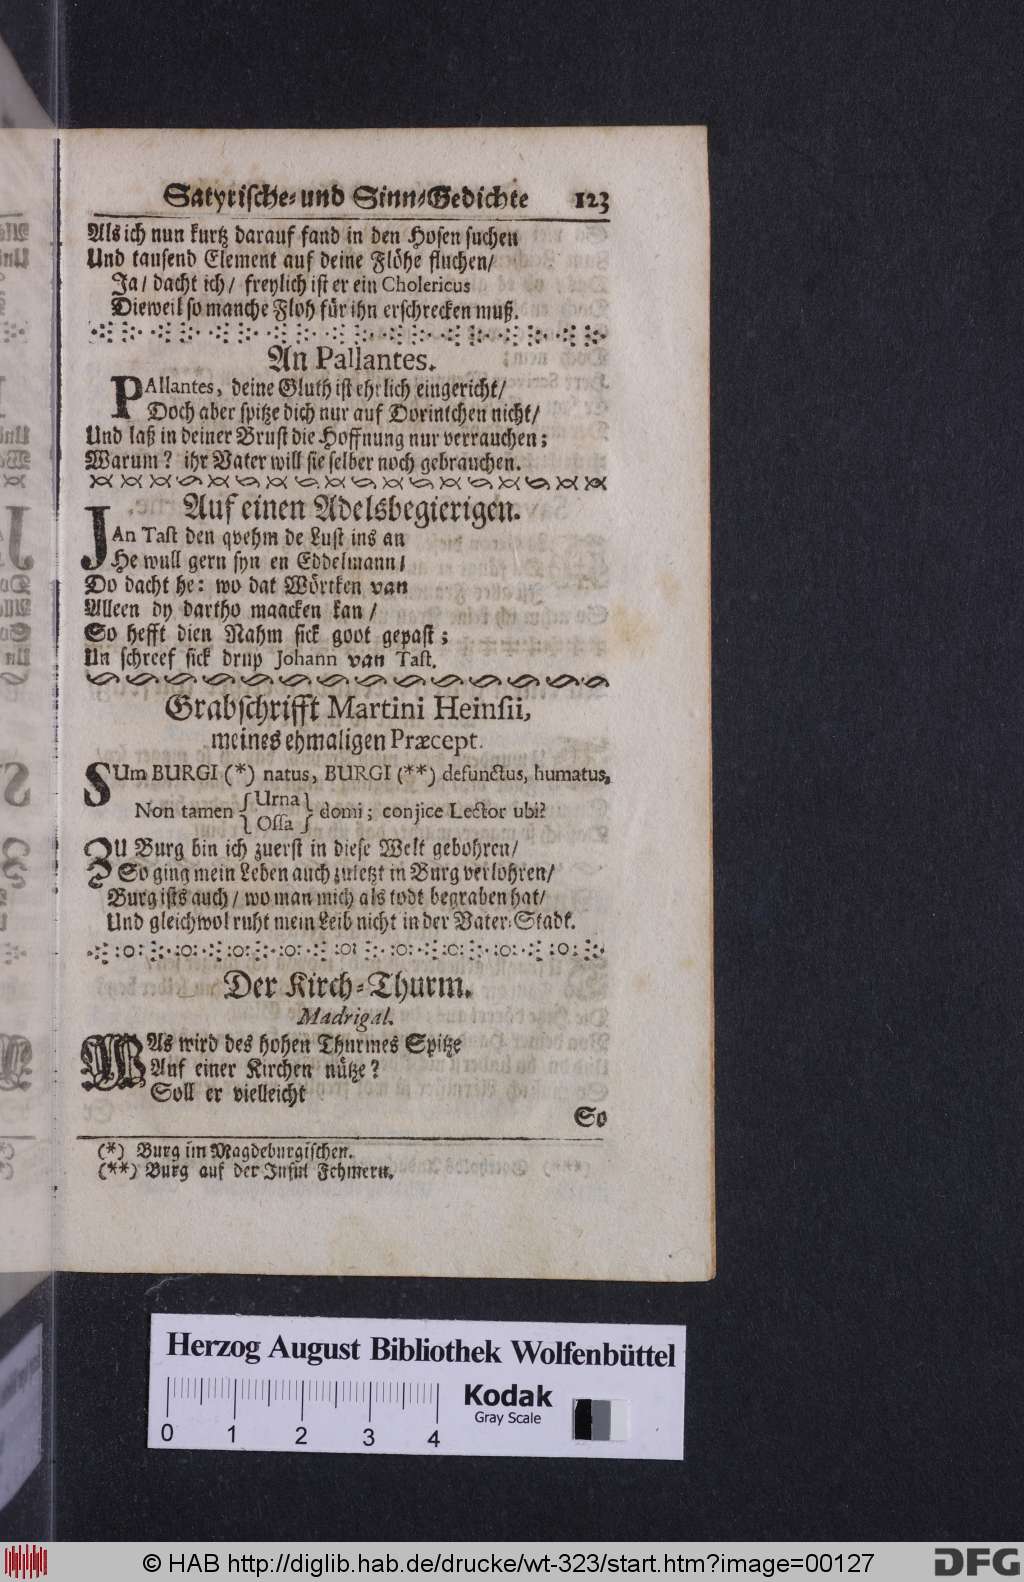 Satyrische- und Sinn-Gedichte 123
Als ich nun kurtz darauf fand in den Hosen suchen
Und tausend Element auf deine Flöhe fluchen/
Ja/ dacht ich/ freylich ist er ein Cholericus
Dieweil so manche Floh für ihn erschrecken muß.
An Pallantes.
PAllantes, deine Gluth ist ehrlich eingericht/
Doch aber spitze dich nur auf Dorintchen nicht/
Und laß in deiner Brust die Hoffnung nur verrauchen;
Warum? ihr Vater will sie selber noch gebrauchen.
Auf einen Adelsbegierigen.
JAn Tast den qvehm de Lust ins an
He wull gern syn en Eddelmann/
Do dacht he: wo dat Wörtken van
Alleen dy dartho maacken kan/
So hefft dien Nahm sick goot gepast;
Un schreef sick drup Johann van Tast.
Grabschrifft Martini Heinsii,
meines ehmaligen Præcept.
SUm BURGI (*) natus, BURGI (**) defunctus, humatus,
Non tamen { Urna } domi; conjice Lector ubi?
{ Ossa }
ZU Burg bin ich zuerst in diese Welt gebohren/
So ging mein Leben auch zuletzt in Burg verlohren/
Burg ists auch/ wo man mich als todt begraben hat/
Und gleichwol ruht mein Leib nicht in der Vater-Stadt.
Der Kirch-Thurm.
Madrigal.
WAs wird des hohen Thurmes Spitze
Auf einer Kirchen nütze?
Soll er vielleicht
So
(*) Burg im Magdeburgischen.
(**) Burg auf der Insul Fehmern.
Herzog August Bibliothek Wolfenbüttel
Kodak
Gray Scale
0 1 2 3 4
© HAB http://diglib.hab.de/drucke/wt-323/start.htm?image=00127
DFG